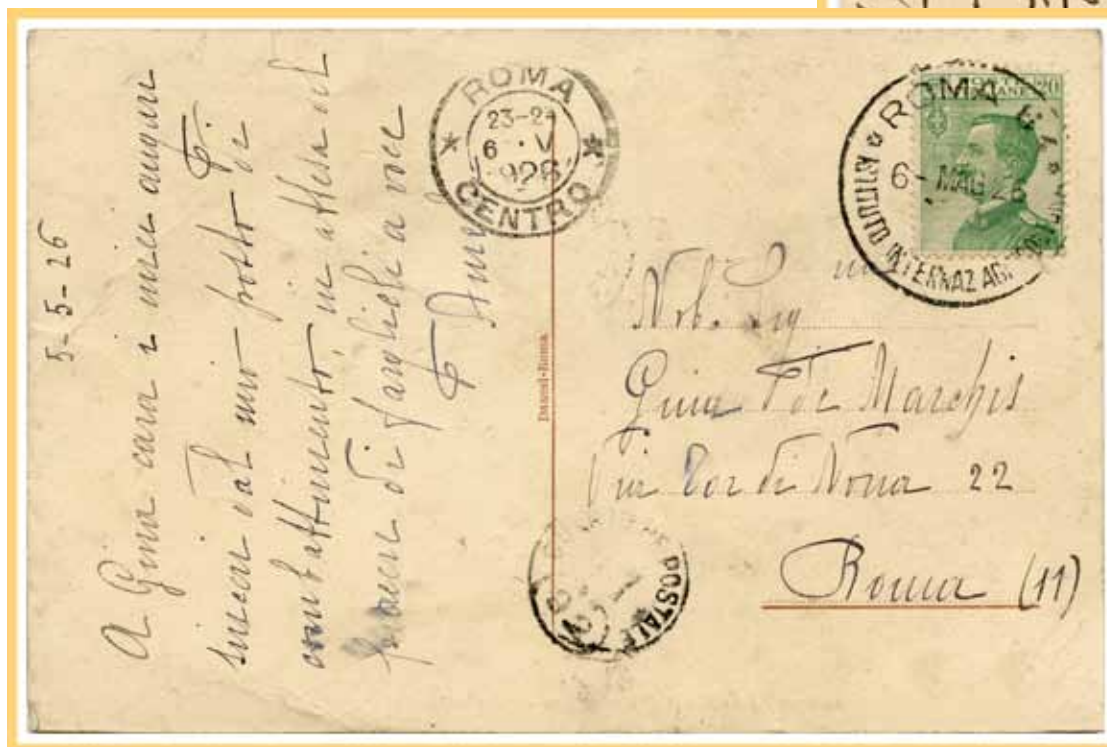 5-5-26
A Gina cara i miei auguri
sinceri dal mio posto di
combattimento, in attesa del
piacere di farglieli a voce
ROMA
CENTRO
23-24
6 · V
1926
Danesi-Roma
ROMA
6 - MAG 26
ISTITUTO INTERNAZ AGRICOL
POSTE ITALIANE
20
Nob. Sig
Gina De Marchis
Via Tor di Nona 22
Roma (11)
POSTALE